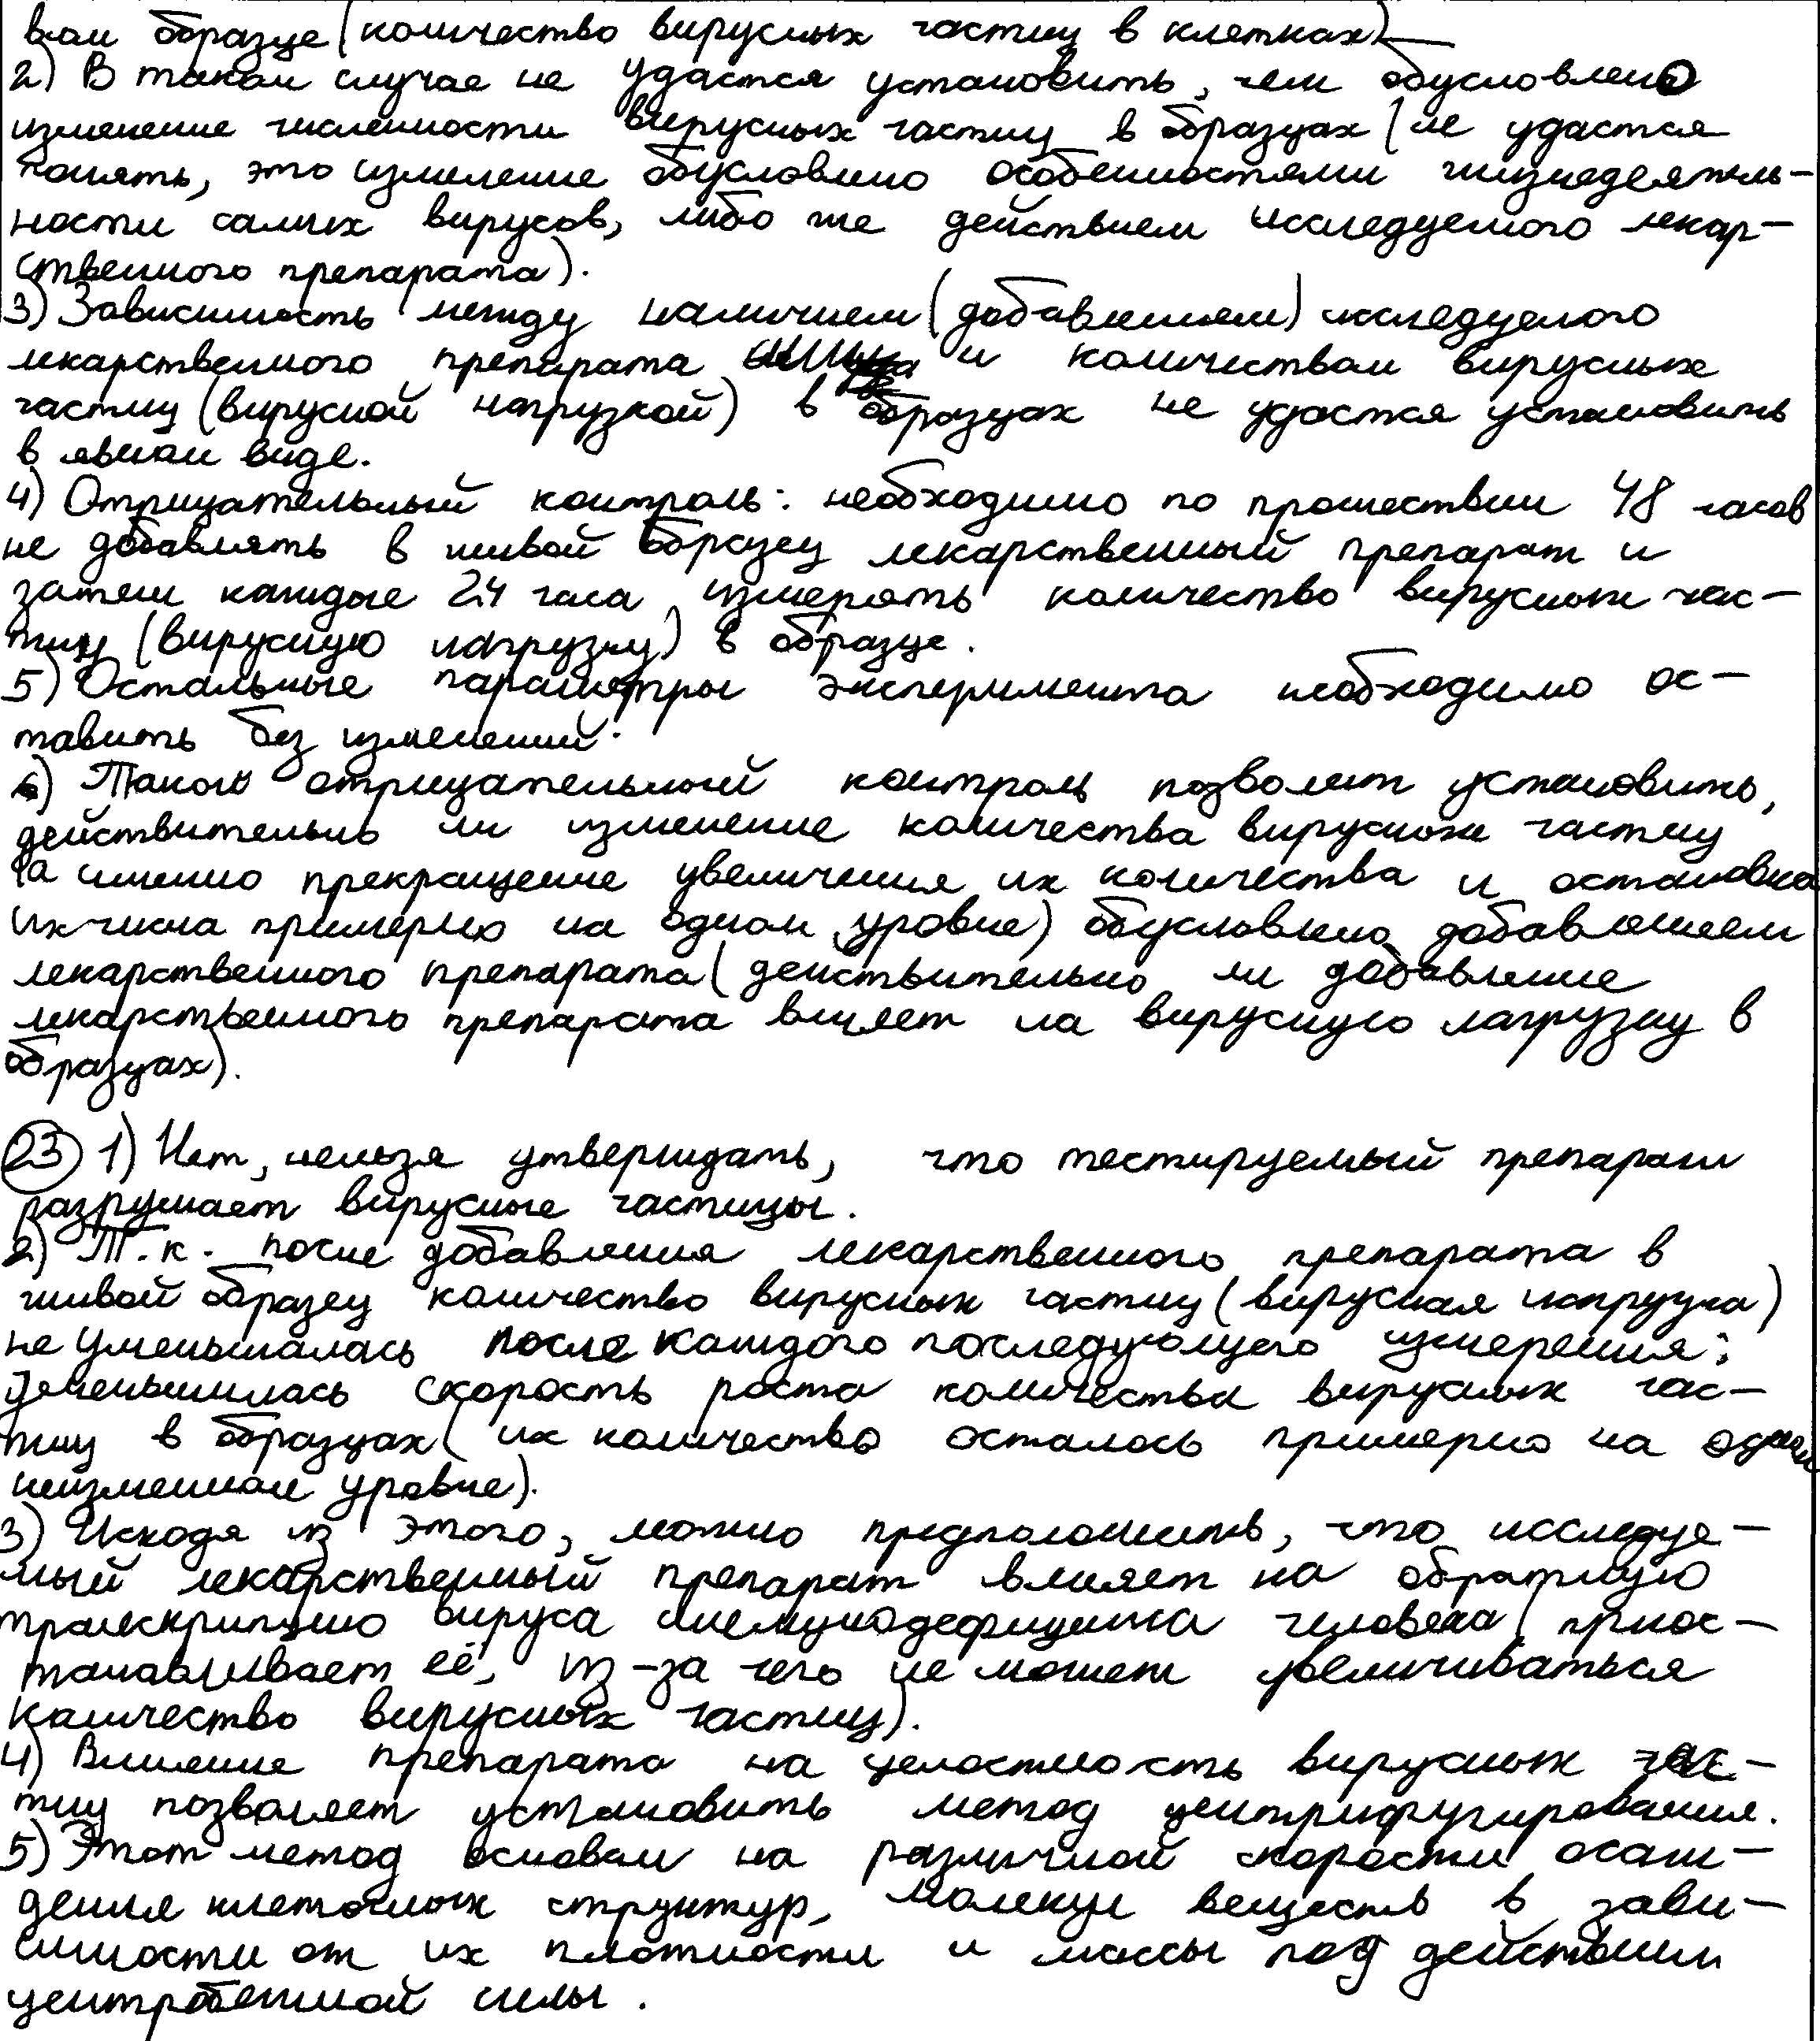 вом образце (количество вирусных частиц в клетках)
2) В таком случае не удастся установить, чем обусловлено
изменение численности вирусных частиц в образцах (не удастся
понять, это изменение обусловлено особенностями жизнедеятель-
ности самих вирусов, либо же действием исследуемого лекар-
ственного препарата).
3) Зависимость между наличием (добавлением) исследуемого
лекарственного препарата и количеством вирусных
частиц (вирусной нагрузкой) в образцах не удастся установить
в явном виде.
4) Отрицательный контроль: необходимо по прошествии 48 часов
не добавлять в живой образец лекарственный препарат и
затем каждые 24 часа измерять количество вирусных час-
тиц (вирусную нагрузку) в образце.
5) Остальные параметры эксперимента необходимо ос-
тавить без изменений.
6) Такой отрицательный контроль позволит установить,
действительно ли изменение количества вирусных частиц
(а именно прекращение увеличения их количества и остановка
их числа примерно на одном уровне) обусловлено добавлением
лекарственного препарата (действительно ли добавление
лекарственного препарата влияет на вирусную нагрузку в
образцах).
23 1) Нет, нельзя утверждать, что тестируемый препарат
разрушает вирусные частицы.
2) Т.к. после добавления лекарственного препарата в
живой образец количество вирусных частиц (вирусная нагрузка)
не уменьшалась после каждого последующего измерения;
уменьшилась скорость роста количества вирусных час-
тиц в образцах (их количество осталось примерно на одном
неизменном уровне).
3) Исходя из этого, можно предположить, что исследуе-
мый лекарственный препарат влияет на обратную
транскрипцию вируса иммунодефицита человека (приос-
танавливает её, из-за чего не может увеличиваться
количество вирусных частиц).
4) Влияние препарата на целостность вирусных час-
тиц позволяет установить метод центрифугирования.
5) Этот метод основан на различной скорости осаж-
дения клеточных структур, молекул веществ в зави-
симости от их плотности и массы под действием
центробежной силы.